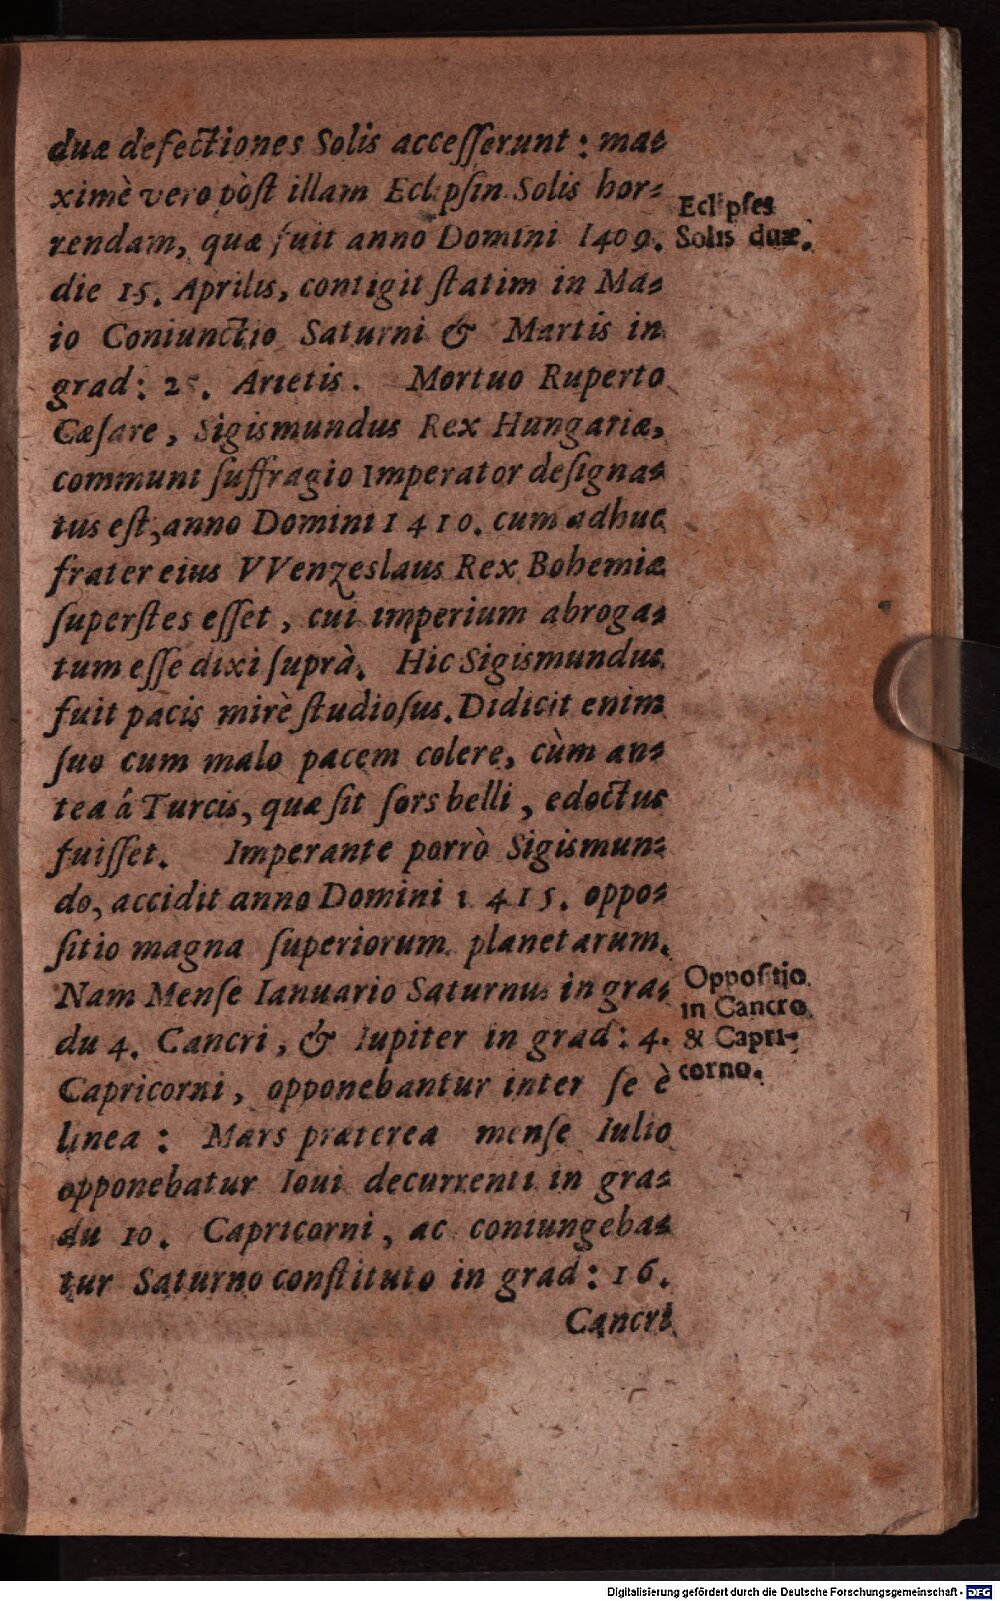 duæ defectiones Solis acceſſerunt: ma⸗
ximè vero pòſt illam Eclipſin Solis hor⸗
rendam, quæ fuit anno Domini 1409.
Eclipſes
Solis duæ.
die 15. Aprilis, contigit ſtatim in Ma⸗
io Coniunctio Saturni & Martis in
grad: 25. Arietis. Mortuo Ruperto
Cæſare, Sigismundus Rex Hungariæ,
communi ſuffragio Imperator deſigna⸗
tus eſt, anno Domini 1410. cum adhuc
frater eius VVenzeslaus Rex Bohemiæ
ſuperſtes eſſet, cui imperium abroga⸗
tum eſſe dixi ſuprà. Hic Sigismundus
fuit pacis mirè ſtudioſus. Didicit enim
ſuo cum malo pacem colere, cùm an⸗
tea á Turcis, quæ ſit ſors belli, edoctus
fuiſſet. Imperante porrò Sigismun⸗
do, accidit anno Domini 1415. oppo⸗
ſitio magna ſuperiorum planetarum.
Nam Menſe Ianuario Saturnus in gra⸗
du 4. Cancri, & Iupiter in grad: 4.
Capricorni, opponebantur inter ſe è
Oppoſitio
in Cancro
& Capri-
corno.
linea: Mars præterea menſe Iulio
opponebatur Ioui decurrenti in gra⸗
du 10. Capricorni, ac coniungeba⸗
tur Saturno conſtituto in grad: 16.
Cancri
Digitalisierung gefördert durch die Deutsche Forschungsgemeinschaft - DFG